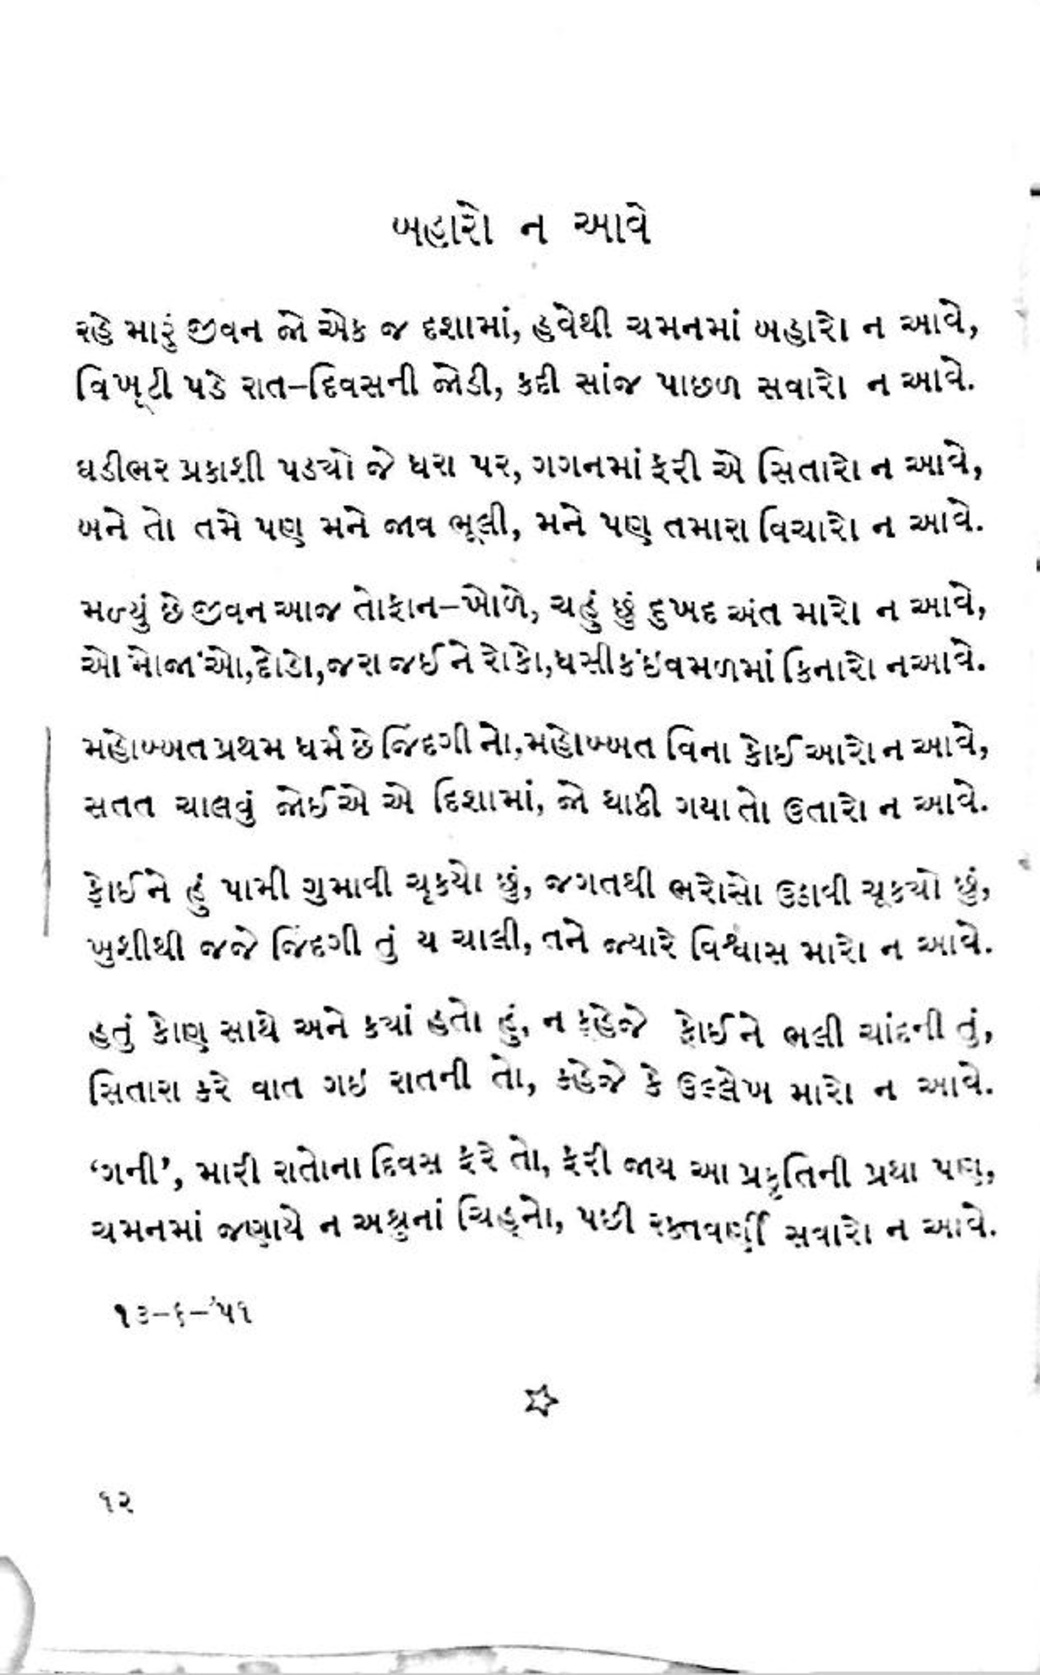 બહારો ન આવે
રહે મારું જીવન જો એક જ દશામાં, હવેથી ચમનમાં બહારો ન આવે,
વિખૂટી પડે રાત–દિવસની જોડી, કદી સાંજ પાછળ સવારો ન આવે.
ઘડીભર પ્રકાશી પડ્યો જે ધરા પર, ગગનમાં ફરી એ સિતારો ન આવે,
બને તો તમે પણ મને જાવ ભૂલી, મને પણ તમારા વિચારો ન આવે.
મળ્યું છે જીવન આજ તોફાન–ખોળે, ચહું છું દુખદ અંત મારો ન આવે,
ઓ મોજાંઓ, દોડો, જરા જઈને રોકો, ધસી કંઇ વમળમાં કિનારો ન આવે.
મહોબ્બત પ્રથમ ધર્મ છે જિંદગીનો, મહોબ્બત વિના કોઈ આરો ન આવે,
સતત ચાલવું જોઈએ એ દિશામાં, જો થાકી ગયા તો ઉતારો ન આવે.
કોઈને હું પામી ગુમાવી ચૂકયો છું, જગતથી ભરોસો ઉઠાવી ચૂકયો છું,
ખુશીથી જજે જિંદગી તું ય ચાલી, તને જ્યારે વિશ્વાસ મારો ન આવે.
હતું કોણ સાથે અને કયાં હતો હું, ન કહેજે કોઈને ભલી ચાંદની તું,
સિતારા કરે વાત ગઇ રાતની તો, કહેજે કે ઉલ્લેખ મારો ન આવે.
‘ગની’, મારી રાતોના દિવસ ફરે તો, ફરી જાય આ પ્રકૃતિની પ્રથા પણ,
ચમનમાં જણાયે ન અશ્રુનાં ચિહ્નો, પછી રક્તવર્ણી સવારો ન આવે.
૧૩–૬–’૫૧
૧૨